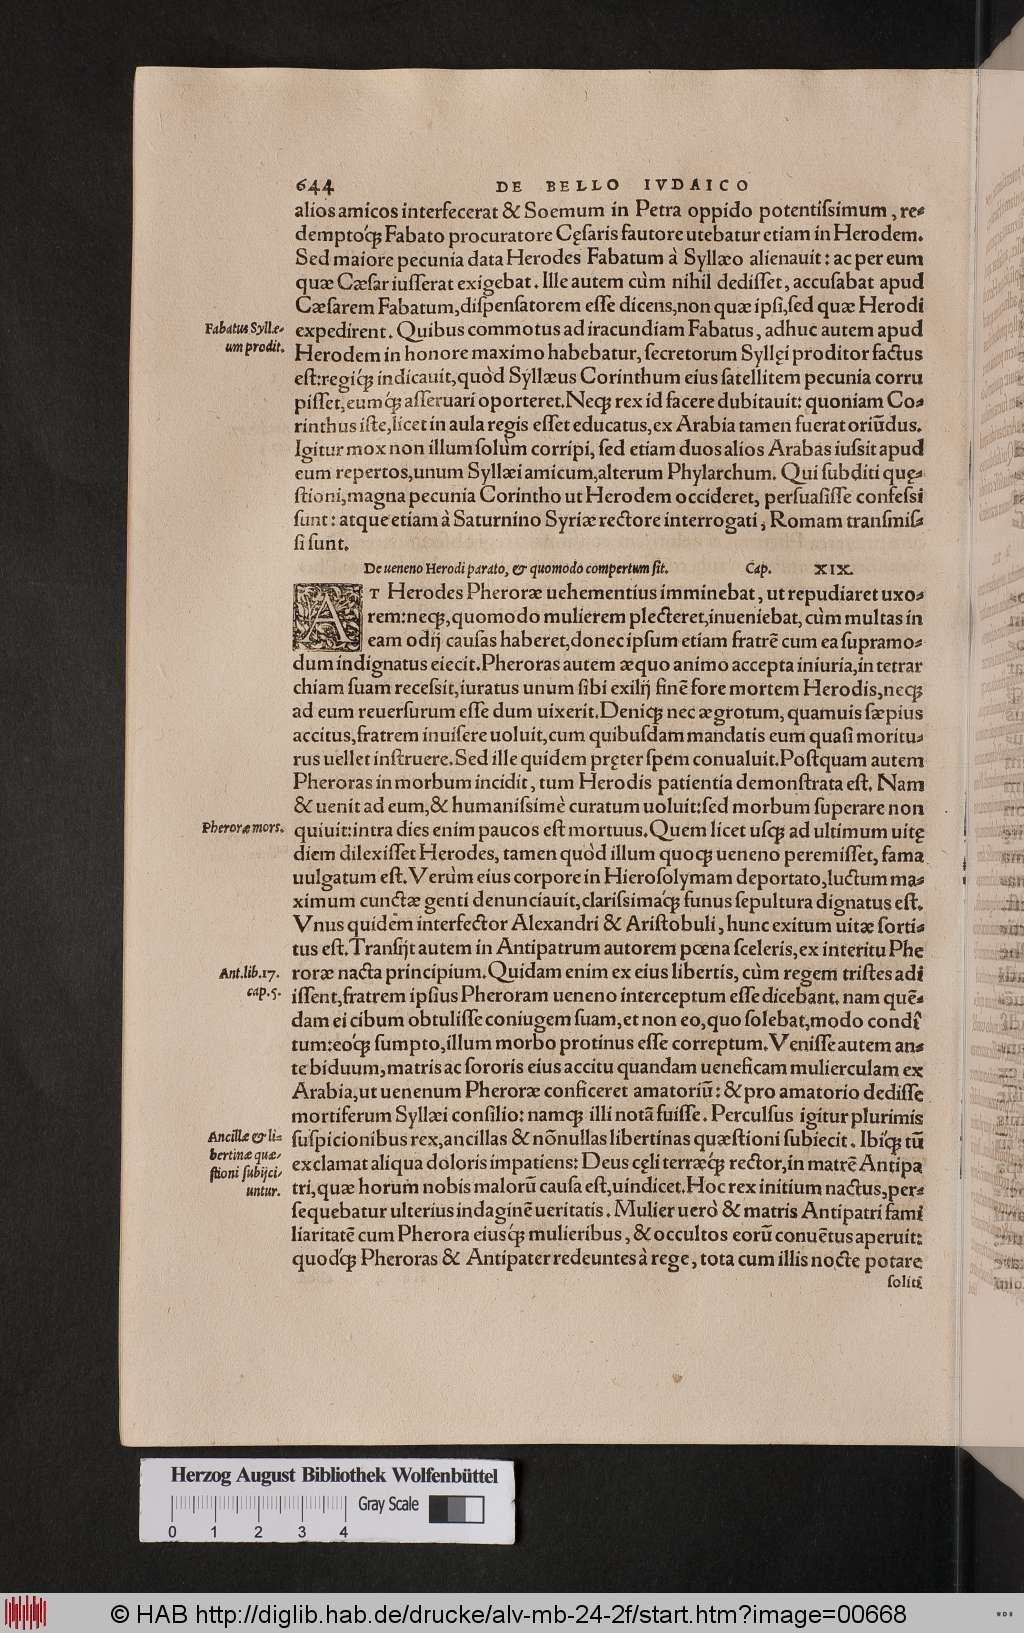 644 DE BELLO IVDAICO
alios amicos interfecerat & Soemum in Petra oppido potentiſsimum, re⸗
demptoq́ꝫ Fabato procuratore Cęſaris fautore utebatur etiam in Herodem.
Sed maiore pecunia data Herodes Fabatum à Syllæo alienauit: ac per eum
quæ Cæſar iuſſerat exigebat. Ille autem cùm nihil dediſſet, accuſabat apud
Cæſarem Fabatum, diſpenſatorem eſſe dicens, non quæ ipſi, ſed quæ Herodi
Fabatus Syllæ⸗ expedirent. Quibus commotus ad iracundiam Fabatus, adhuc autem apud
um prodit. Herodem in honore maximo habebatur, ſecretorum Syllęi proditor factus
eſt: regiq́ꝫ indicauit, quòd Syllæus Corinthum eius ſatellitem pecunia corru
piſſet, eumq́ꝫ aſſeruari oporteret. Neqꝫ rex id facere dubitauit: quoniam Co⸗
rinthus iſte, licet in aula regis eſſet educatus, ex Arabia tamen fuerat oriũdus.
Igitur mox non illum ſolùm corripi, ſed etiam duos alios Arabas iuſsit apud
eum repertos, unum Syllæi amicum, alterum Phylarchum. Qui ſubditi quę⸗
ſtioni, magna pecunia Corintho ut Herodem occideret, perſuaſiſſe confeſsi
ſunt: atque etiam à Saturnino Syriæ rectore interrogati, Romam tranſmiſ⸗
ſi ſunt.
De ueneno Herodi parato, & quomodo compertum ſit. Cap. XIX.
AT Herodes Pheroræ uehementius imminebat, ut repudiaret uxo⸗
rem: neqꝫ, quomodo mulierem plecteret, inueniebat, cùm multas in
eam odij cauſas haberet, donec ipſum etiam fratrẽ cum ea ſupramo⸗
dum indignatus eiecit. Pheroras autem æquo animo accepta iniuria, in tetrar
chiam ſuam receſsit, iuratus unum ſibi exilij finẽ fore mortem Herodis, neqꝫ
ad eum reuerſurum eſſe dum uixerit. Deniqꝫ nec ægrotum, quamuis ſæpius
accitus, fratrem inuiſere uoluit, cum quibuſdam mandatis eum quaſi moritu⸗
rus uellet inſtruere. Sed ille quidem pręter ſpem conualuit. Poſtquam autem
Pheroras in morbum incidit, tum Herodis patientia demonſtrata eſt. Nam
& uenit ad eum, & humaniſsimè curatum uoluit: ſed morbum ſuperare non
Pheroræ mors. quiuit: intra dies enim paucos eſt mortuus. Quem licet uſqꝫ ad ultimum uitę
diem dilexiſſet Herodes, tamen quòd illum quoqꝫ ueneno peremiſſet, fama
uulgatum eſt. Verùm eius corpore in Hieroſolymam deportato, luctum ma⸗
ximum cunctæ genti denunciauit, clariſsimaq́ꝫ funus ſepultura dignatus eſt.
Vnus quidem interfector Alexandri & Ariſtobuli, hunc exitum uitæ ſorti⸗
tus eſt. Tranſijt autem in Antipatrum autorem pœna ſceleris, ex interitu Phe
Ant. lib. 17. roræ nacta principium. Quidam enim ex eius libertis, cùm regem triſtes adi
cap. 5. iſſent, fratrem ipſius Pheroram ueneno interceptum eſſe dicebant. nam quẽ⸗
dam ei cibum obtuliſſe coniugem ſuam, et non eo, quo ſolebat, modo condi
tum: eoq́ꝫ ſumpto, illum morbo protinus eſſe correptum. Veniſſe autem an⸗
te biduum, matris ac ſororis eius accitu quandam ueneficam mulierculam ex
Arabia, ut uenenum Pheroræ conficeret amatoriũ: & pro amatorio dediſſe
mortiferum Syllæi conſilio: namqꝫ illi notã fuiſſe. Perculſus igitur plurimis
Ancillæ & li⸗ ſuſpicionibus rex, ancillas & nõnullas libertinas quæſtioni ſubiecit. Ibiq́ꝫ tũ
bertinæ quæ⸗ exclamat aliqua doloris impatiens: Deus cęli terræq́ꝫ rector, in matrẽ Antipa
ſtioni ſubijci⸗ tri, quæ horum nobis malorũ cauſa eſt, uindicet. Hoc rex initium nactus, per⸗
untur. ſequebatur ulterius indaginẽ ueritatis. Mulier uerò & matris Antipatri fami
liaritatẽ cum Pherora eiusq́ꝫ mulieribus, & occultos eorũ conuẽtus aperuit:
quodq́ꝫ Pheroras & Antipater redeuntes à rege, tota cum illis nocte potare
ſoliti
Herzog August Bibliothek Wolfenbüttel
Gray Scale
0 1 2 3 4
© HAB http://diglib.hab.de/drucke/alv-mb-24-2f/start.htm?image=00668